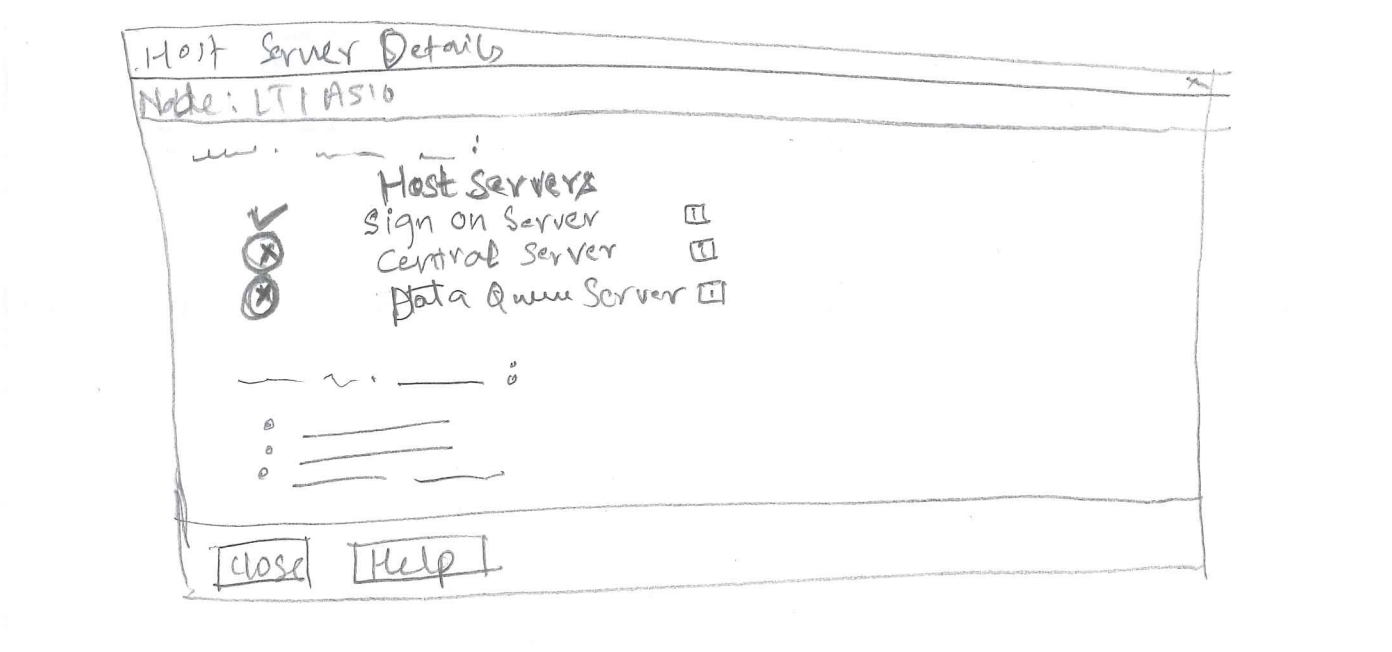 Host Server Details
Node: LT1AS10
Host Servers
Sign on Server
Central Server
Data Queue Server
Close
Help